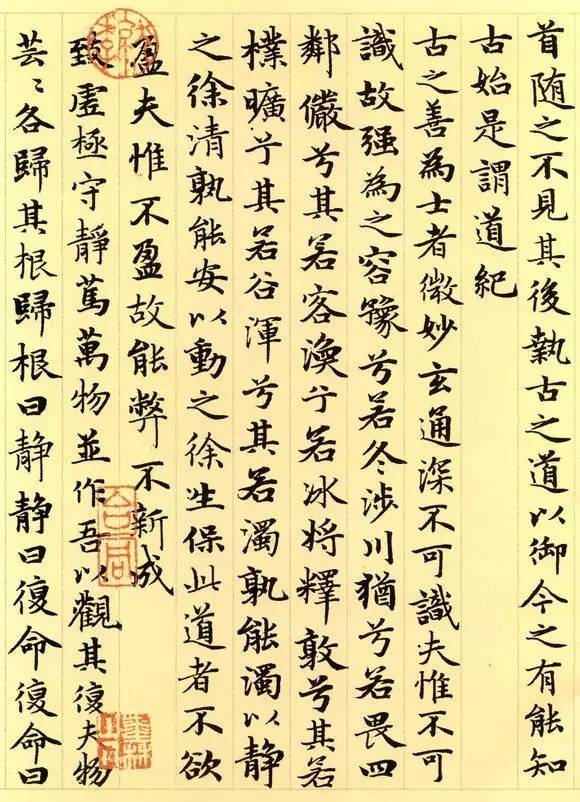 首随之不見其後執古之道以御今之有能知
古始是謂道紀
古之善為士者微妙玄通深不可識夫惟不可
識故强為之容豫兮若冬涉川猶兮若畏四
鄰儼兮其若客渙兮若冰将釋敦兮其若
樸曠兮其若谷渾兮其若濁孰能濁以静
之徐清孰能安以動之徐生保此道者不欲
盈夫惟不盈故能弊不新成
致虛極守靜篤萬物並作吾以觀其復夫物
芸〻各歸其根歸根曰静静曰復命復命曰
合同